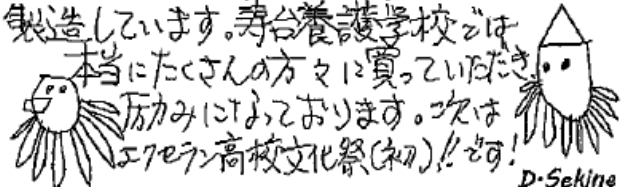 製造しています。寿台養護学校では
本当にたくさんの方々に買っていただき
励みになっております。次は
エクセラン高校文化祭(初)!!です!
D·Sekine